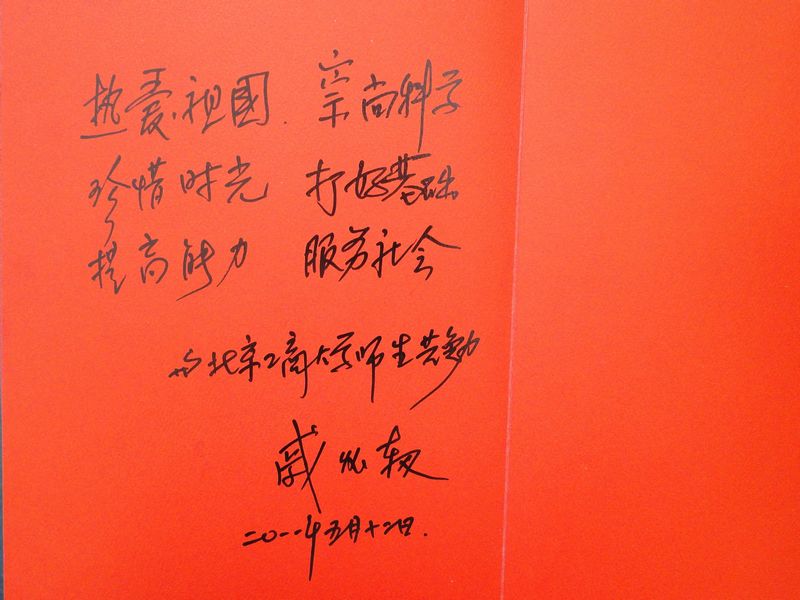 热爱祖國. 崇尚科学
珍惜时光 打好基础
提高能力 服务社会
与北京工商大学师生共勉
戚发轫
二〇一一年五月十二日.